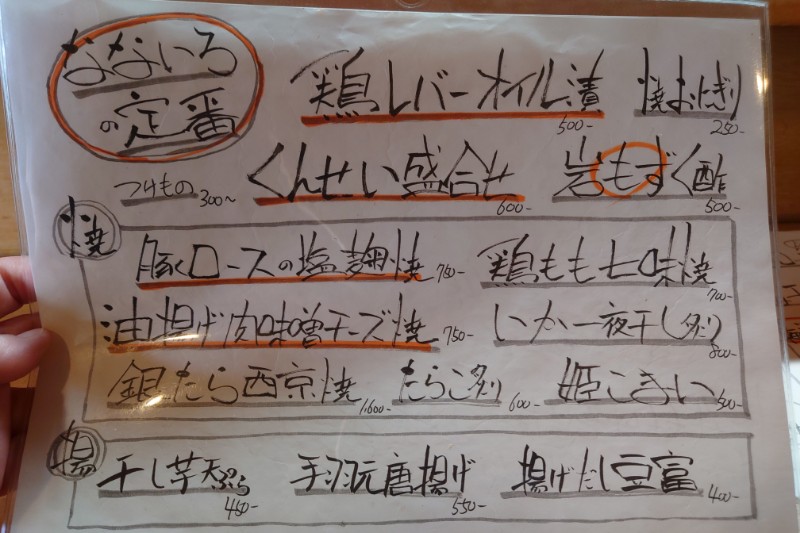 なないろ
の定番
鶏レバーオイル漬 500-
焼おにぎり 250-
つけもの 300~
くんせい盛合せ 600-
岩もずく酢 500-
焼
豚ロースの塩麹焼 750-
鶏もも七味焼 700-
油揚げ肉味噌チーズ焼 750-
いか一夜干し炙り 800-
銀たら西京焼 1,600-
たらこ炙り 600-
姫こまい 500-
揚
干し芋天ぷら 450-
手羽元唐揚げ 550-
揚げだし豆富 400-